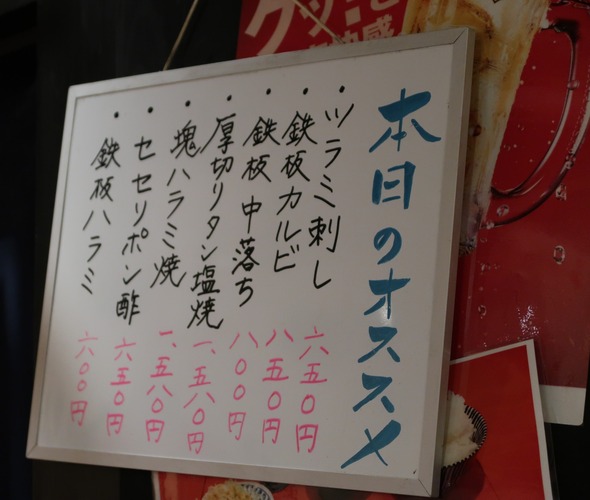 本日のオススメ
・ツラミ刺し 六五〇円
・鉄板カルビ 八五〇円
・鉄板中落ち 八〇〇円
・厚切リタン塩焼 一、五八〇円
・塊ハラミ焼 一、五八〇円
・セセリポン酢 六五〇円
・鉄板ハラミ 六〇〇円